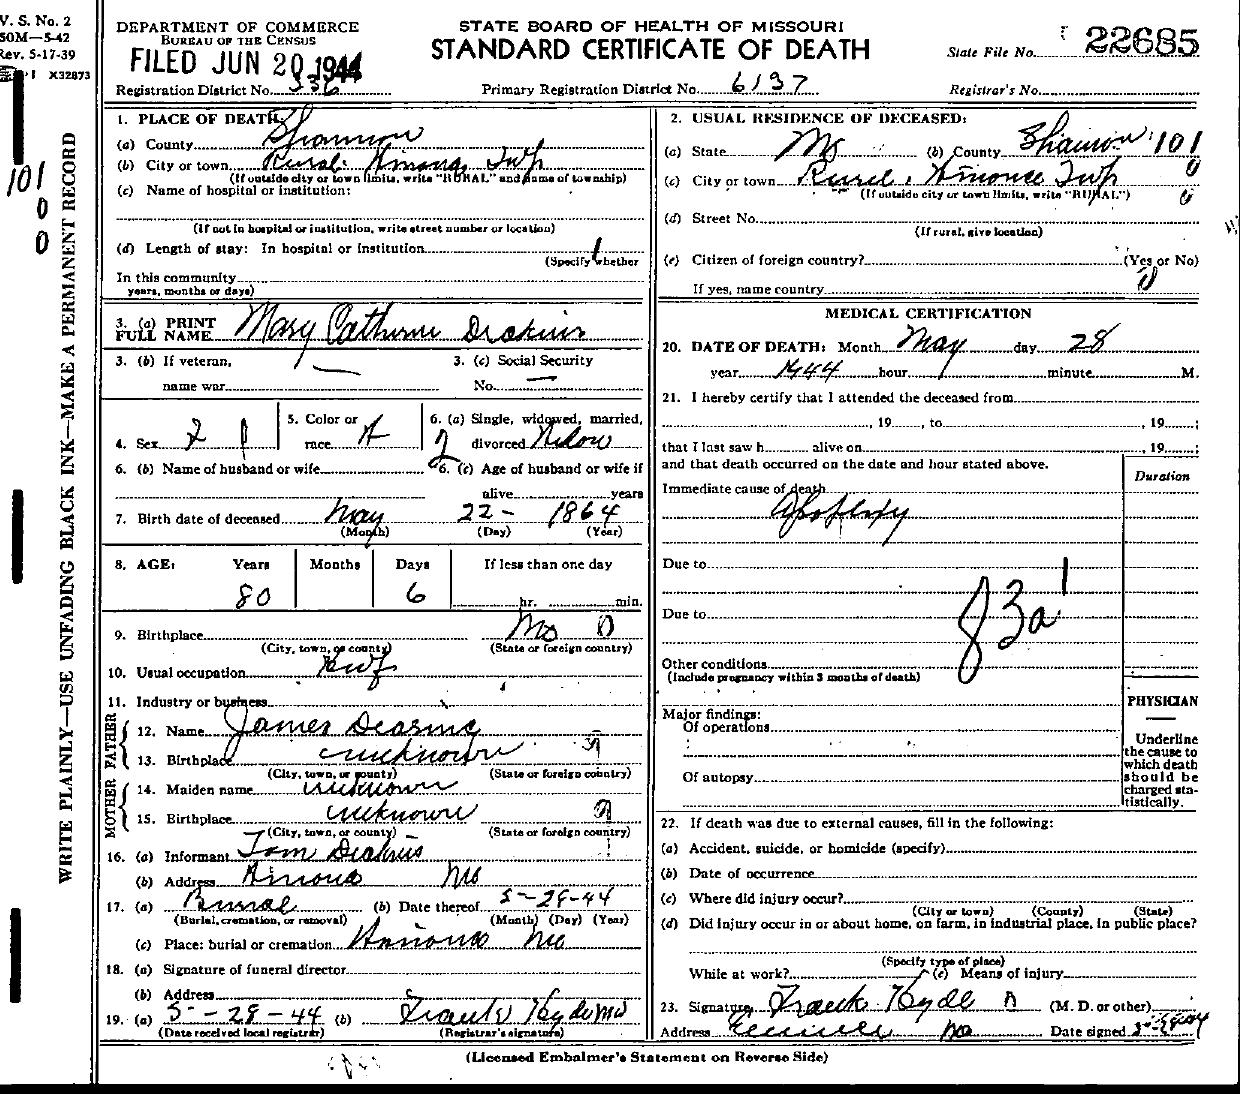 V. S. No. 2
50M—5-42
Rev. 5-17-39
X32873
DEPARTMENT OF COMMERCE
BUREAU OF THE CENSUS
FILED JUN 20 1944
STATE BOARD OF HEALTH OF MISSOURI
STANDARD CERTIFICATE OF DEATH
State File No. 22685
Registration District No. 336
Primary Registration District No. 6137
Registrar's No.
WRITE PLAINLY—USE UNFADING BLACK INK—MAKE A PERMANENT RECORD
101
0
0
1. PLACE OF DEATH:
(a) County Shannon
(b) City or town Rural: Twp
(If outside city or town limits, write "RURAL" and name of township)
(c) Name of hospital or institution:
(If not in hospital or institution, write street number or location)
(d) Length of stay: In hospital or institution
(Specify whether
In this community
years, months or days)
3. (a) PRINT FULL NAME Mary Catherine Deakins
3. (b) If veteran,
name war
3. (c) Social Security
No. —
4. Sex
5. Color or
race
6. (a) Single, widowed, married,
divorced Widow
6. (b) Name of husband or wife
6. (c) Age of husband or wife if
alive years
7. Birth date of deceased May 22 - 1864
(Month) (Day) (Year)
8. AGE: Years Months Days If less than one day
80 6 hr. min.
9. Birthplace Mo 0
(City, town, or county) (State or foreign country)
10. Usual occupation Hwf
11. Industry or business
FATHER
12. Name James Dearing
13. Birthplace unknown 9
(City, town, or county) (State or foreign country)
MOTHER
14. Maiden name unknown
15. Birthplace unknown 9
(City, town, or county) (State or foreign country)
16. (a) Informant Tom Deakins
(b) Address Mo
17. (a) Burial (b) Date thereof 5-29-44
(Burial, cremation, or removal) (Month) (Day) (Year)
(c) Place: burial or cremation Mo
18. (a) Signature of funeral director
(b) Address
19. (a) 5-29-44 (b) Frank Hyde MD
(Date received local registrar) (Registrar's signature)
2. USUAL RESIDENCE OF DECEASED:
(a) State Mo (b) County Shannon 101
(c) City or town Rural, Twp 0
(If outside city or town limits, write "RURAL") 0
(d) Street No.
(If rural, give location)
(e) Citizen of foreign country? (Yes or No)
If yes, name country 0
MEDICAL CERTIFICATION
20. DATE OF DEATH: Month May day 28
year 1944 hour minute M.
21. I hereby certify that I attended the deceased from
, 19 , to , 19 ;
that I last saw h alive on , 19 ;
and that death occurred on the date and hour stated above.
Duration
Immediate cause of death
Apoplexy
Due to
Due to
83a 1
Other conditions
(Include pregnancy within 3 months of death)
Major findings:
Of operations
Of autopsy
PHYSICIAN
Underline
the cause to
which death
should be
charged sta-
tistically.
22. If death was due to external causes, fill in the following:
(a) Accident, suicide, or homicide (specify)
(b) Date of occurrence
(c) Where did injury occur?
(City or town) (County) (State)
(d) Did injury occur in or about home, on farm, in industrial place, in public place?
(Specify type of place)
While at work? (e) Means of injury
23. Signature Frank Hyde (M. D. or other)
Address Eminence Mo Date signed
(Licensed Embalmer's Statement on Reverse Side)